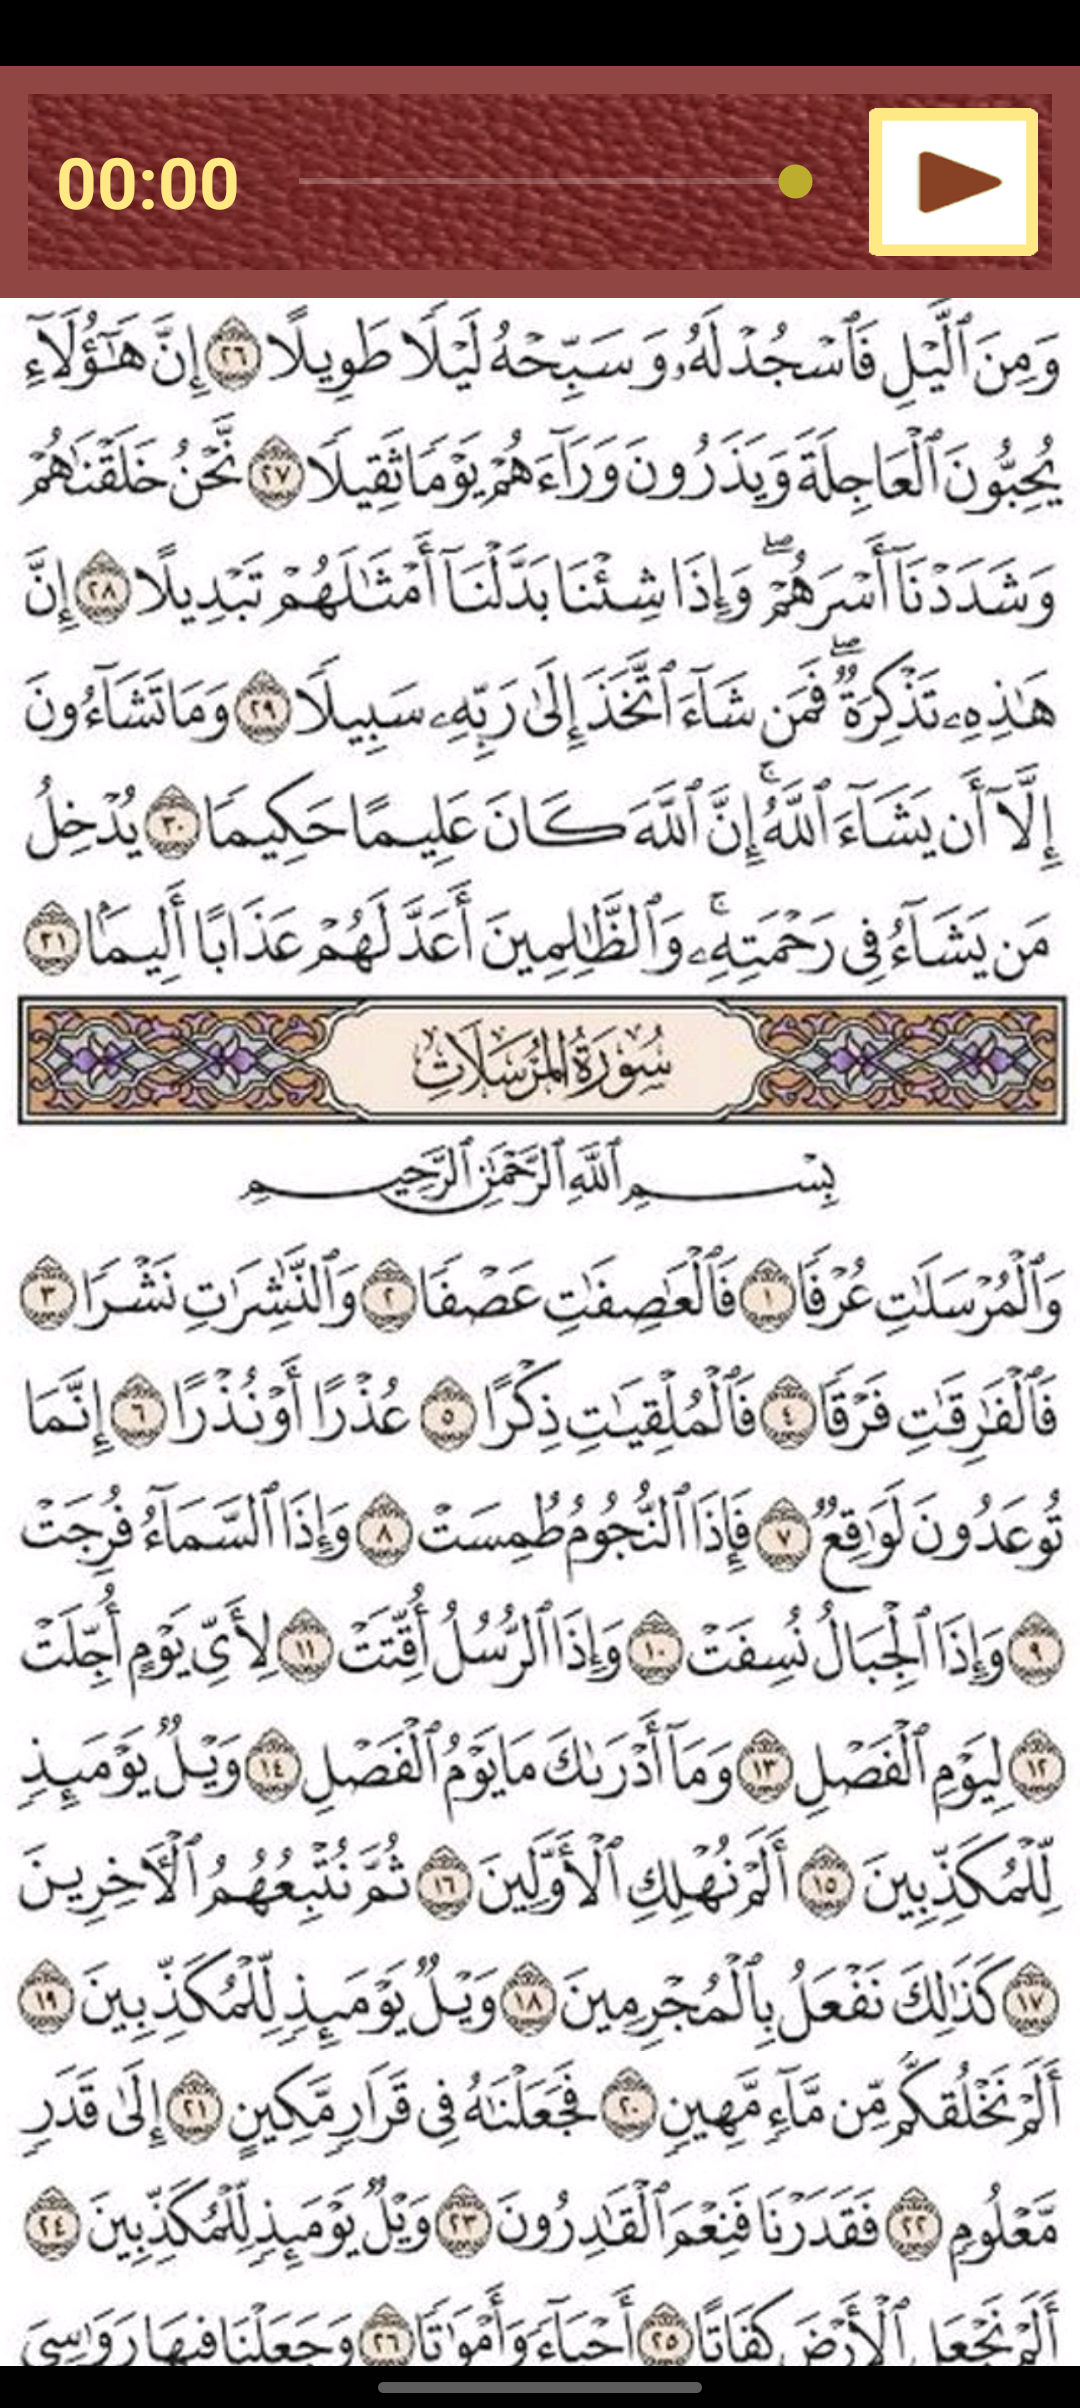 00:00
وَمِنَ ٱلَّيْلِ فَٱسْجُدْ لَهُۥ وَسَبِّحْهُ لَيْلًا طَوِيلًا ٢٦ إِنَّ هَـٰٓؤُلَآءِ
يُحِبُّونَ ٱلْعَاجِلَةَ وَيَذَرُونَ وَرَآءَهُمْ يَوْمًا ثَقِيلًا ٢٧ نَّحْنُ خَلَقْنَـٰهُمْ
وَشَدَدْنَآ أَسْرَهُمْ ۖ وَإِذَا شِئْنَا بَدَّلْنَآ أَمْثَـٰلَهُمْ تَبْدِيلًا ٢٨ إِنَّ
هَـٰذِهِۦ تَذْكِرَةٌ ۖ فَمَن شَآءَ ٱتَّخَذَ إِلَىٰ رَبِّهِۦ سَبِيلًا ٢٩ وَمَا تَشَآءُونَ
إِلَّآ أَن يَشَآءَ ٱللَّهُ ۚ إِنَّ ٱللَّهَ كَانَ عَلِيمًا حَكِيمًا ٣٠ يُدْخِلُ
مَن يَشَآءُ فِى رَحْمَتِهِۦ ۚ وَٱلظَّـٰلِمِينَ أَعَدَّ لَهُمْ عَذَابًا أَلِيمًۢا ٣١
سُورَةُ المُرْسَلَاتِ
بِسْمِ ٱللَّهِ ٱلرَّحْمَـٰنِ ٱلرَّحِيمِ
وَٱلْمُرْسَلَـٰتِ عُرْفًا ١ فَٱلْعَـٰصِفَـٰتِ عَصْفًا ٢ وَٱلنَّـٰشِرَٰتِ نَشْرًا ٣
فَٱلْفَـٰرِقَـٰتِ فَرْقًا ٤ فَٱلْمُلْقِيَـٰتِ ذِكْرًا ٥ عُذْرًا أَوْ نُذْرًا ٦ إِنَّمَا
تُوعَدُونَ لَوَٰقِعٌ ٧ فَإِذَا ٱلنُّجُومُ طُمِسَتْ ٨ وَإِذَا ٱلسَّمَآءُ فُرِجَتْ
٩ وَإِذَا ٱلْجِبَالُ نُسِفَتْ ١٠ وَإِذَا ٱلرُّسُلُ أُقِّتَتْ ١١ لِأَىِّ يَوْمٍ أُجِّلَتْ
١٢ لِيَوْمِ ٱلْفَصْلِ ١٣ وَمَآ أَدْرَىٰكَ مَا يَوْمُ ٱلْفَصْلِ ١٤ وَيْلٌ يَوْمَئِذٍ
لِّلْمُكَذِّبِينَ ١٥ أَلَمْ نُهْلِكِ ٱلْأَوَّلِينَ ١٦ ثُمَّ نُتْبِعُهُمُ ٱلْـَٔاخِرِينَ
١٧ كَذَٰلِكَ نَفْعَلُ بِٱلْمُجْرِمِينَ ١٨ وَيْلٌ يَوْمَئِذٍ لِّلْمُكَذِّبِينَ ١٩
أَلَمْ نَخْلُقكُّم مِّن مَّآءٍ مَّهِينٍ ٢٠ فَجَعَلْنَـٰهُ فِى قَرَارٍ مَّكِينٍ ٢١ إِلَىٰ قَدَرٍ
مَّعْلُومٍ ٢٢ فَقَدَرْنَا فَنِعْمَ ٱلْقَـٰدِرُونَ ٢٣ وَيْلٌ يَوْمَئِذٍ لِّلْمُكَذِّبِينَ ٢٤
أَلَمْ نَجْعَلِ ٱلْأَرْضَ كِفَاتًا ٢٥ أَحْيَآءً وَأَمْوَٰتًا ٢٦ وَجَعَلْنَا فِيهَا رَوَٰسِىَ